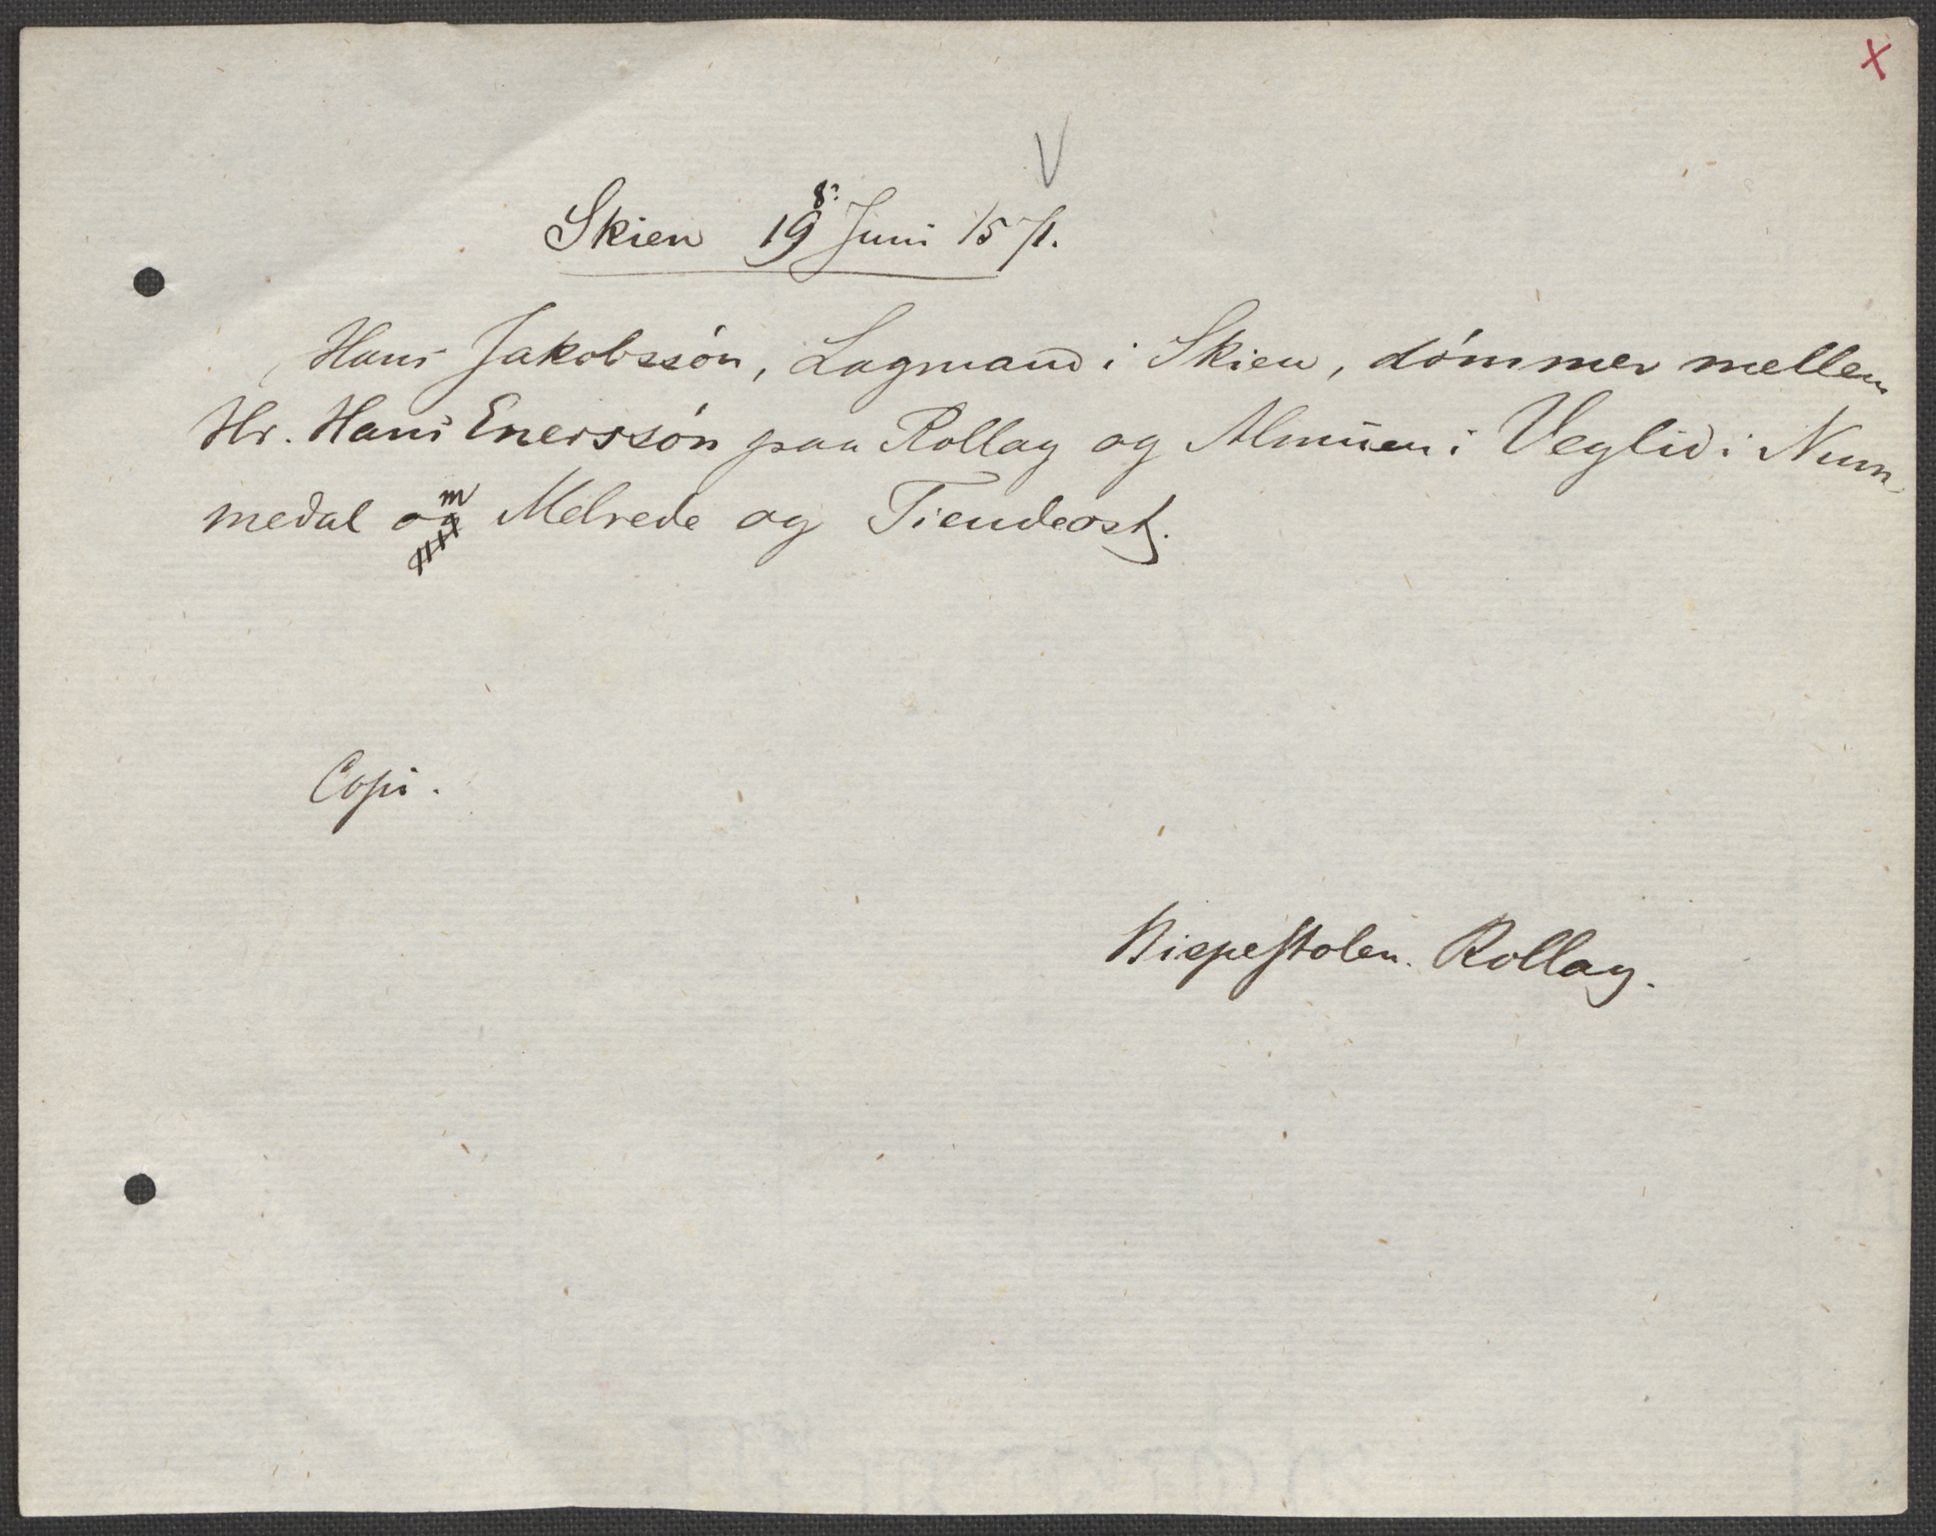 X
V
Skien 19 8: Juni 1571.
Hans Jakobssøn, Lagmand i Skien, dømmer mellem
Hr. Hans Enerssøn paa Rollag og Almuen i Veglid i Num-
medal om Melrede og Tiendeost.
Copi.
Bispestolen. Rollag.